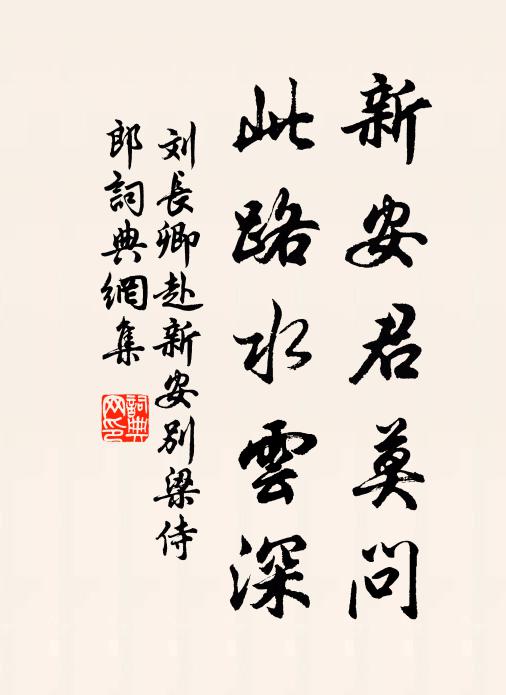 新安君莫问
此路水雲深
刘長卿赴新安别梁侍
郎詞典網集
詞典
网印